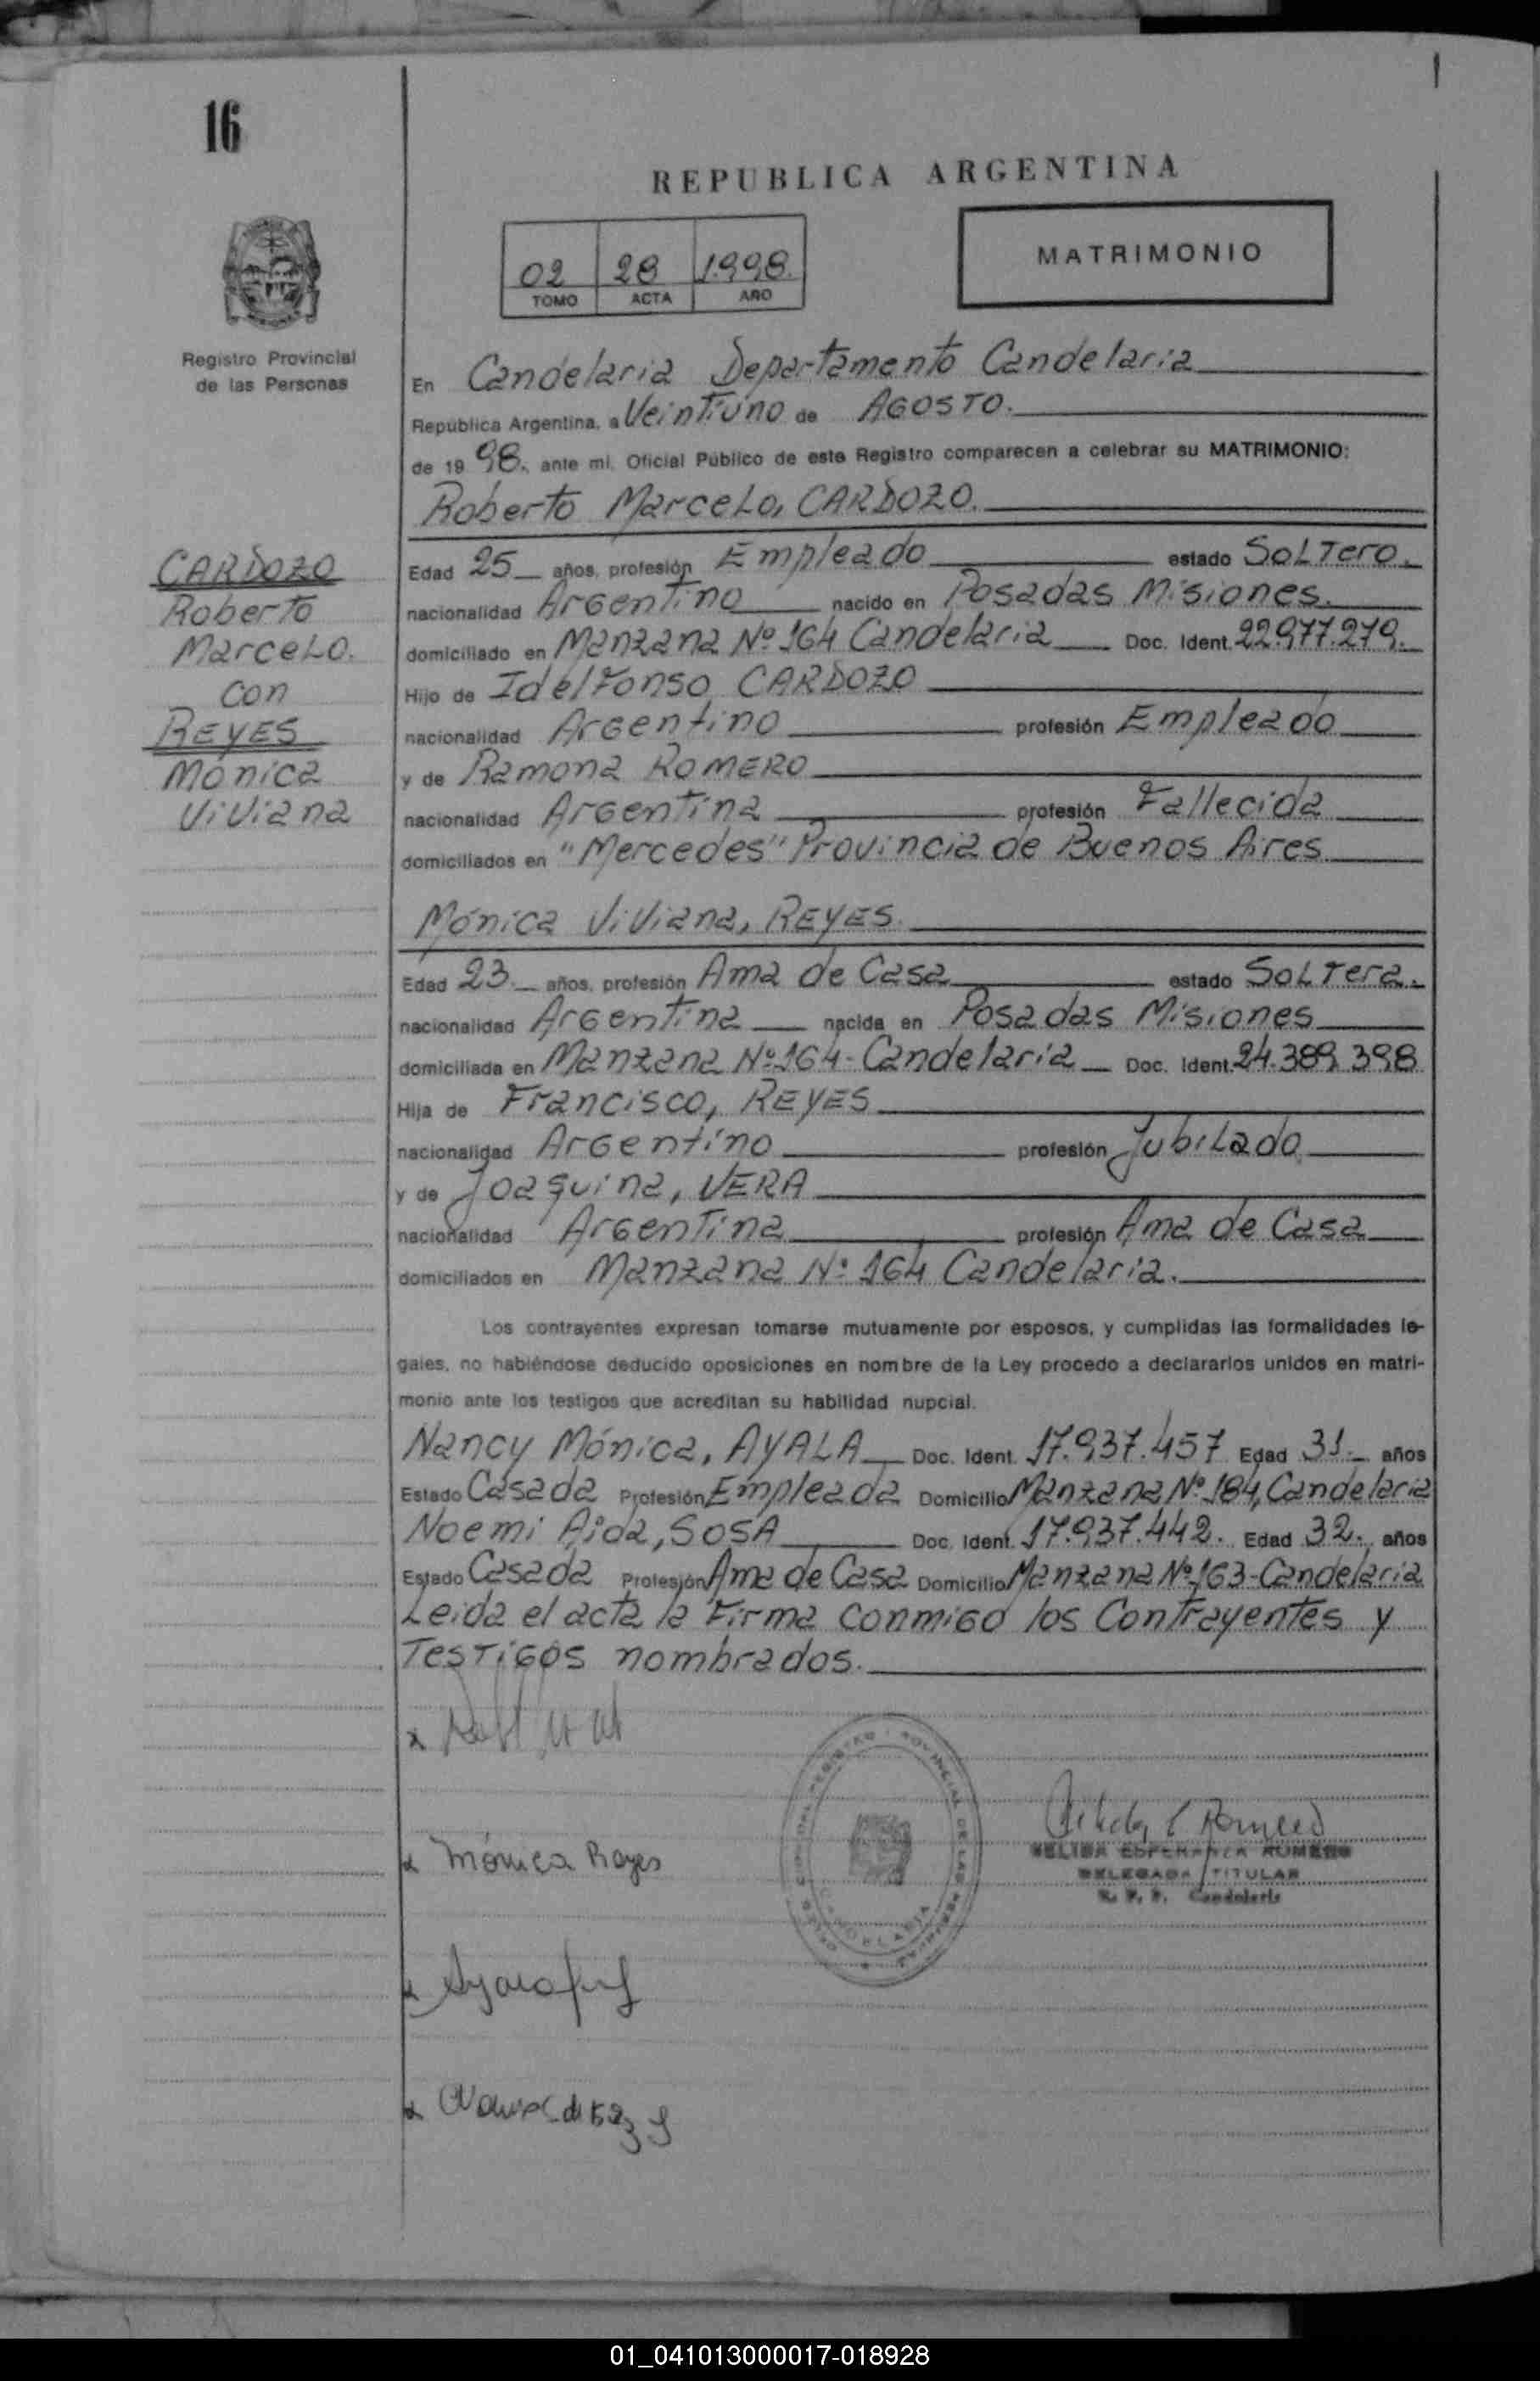 16
REPUBLICA ARGENTINA
02 28 1.998.
TOMO ACTA AÑO
MATRIMONIO
Registro Provincial
de las Personas
En Candelaria Departamento Candelaria
República Argentina, a Veintiuno de AGOSTO.
de 19 98., ante mi, Oficial Público de este Registro comparecen a celebrar su MATRIMONIO:
Roberto Marcelo, CARDOZO.
CARDOZO
Roberto
Marcelo.
con
REYES
Mónica
Viviana
Edad 25 años, profesión Empleado estado Soltero.
nacionalidad Argentino nacido en Posadas Misiones.
domiciliado en Manzana Nº 164 Candelaria Doc. Ident. 22.977.279.
Hijo de Idelfonso CARDOZO
nacionalidad Argentino profesión Empleado
y de Ramona ROMERO
nacionalidad Argentina profesión Fallecida
domiciliados en "Mercedes" Provincia de Buenos Aires
Mónica Viviana, REYES.
Edad 23. años, profesión Ama de Casa estado Soltera.
nacionalidad Argentina nacida en Posadas Misiones
domiciliada en Manzana Nº 164- Candelaria Doc. Ident. 24.389.398
Hija de Francisco, REYES
nacionalidad Argentino profesión Jubilado
y de Joaquina, VERA
nacionalidad Argentina profesión Ama de Casa
domiciliados en Manzana Nº 164 Candelaria.
Los contrayentes expresan tomarse mutuamente por esposos, y cumplidas las formalidades le-
gales, no habiéndose deducido oposiciones en nombre de la Ley procedo a declararlos unidos en matri-
monio ante los testigos que acreditan su habilidad nupcial.
Nancy Mónica, AYALA Doc. Ident. 17.937.457 Edad 31. años
Estado Casada Profesión Empleada Domicilio Manzana Nº 184, Candelaria
Noemi Aida, SOSA Doc. Ident. 17.937.442. Edad 32. años
Estado Casada Profesión Ama de Casa Domicilio Manzana Nº 163-Candelaria
Leida el acta la Firma conmigo los Contrayentes y
Testigos nombrados.
Mónica Reyes
ESPERANZA ROMERO
DELEGADA TITULAR
R. P. P. Candelaria
CANDELARIA
01_041013000017-018928